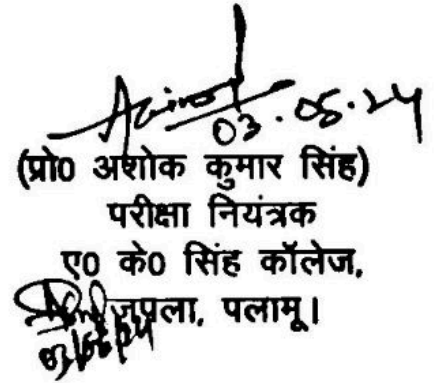 03.05.24
(प्रो0 अशोक कुमार सिंह)
परीक्षा नियंत्रक
ए0 के0 सिंह कॉलेज,
जपला, पलामू।